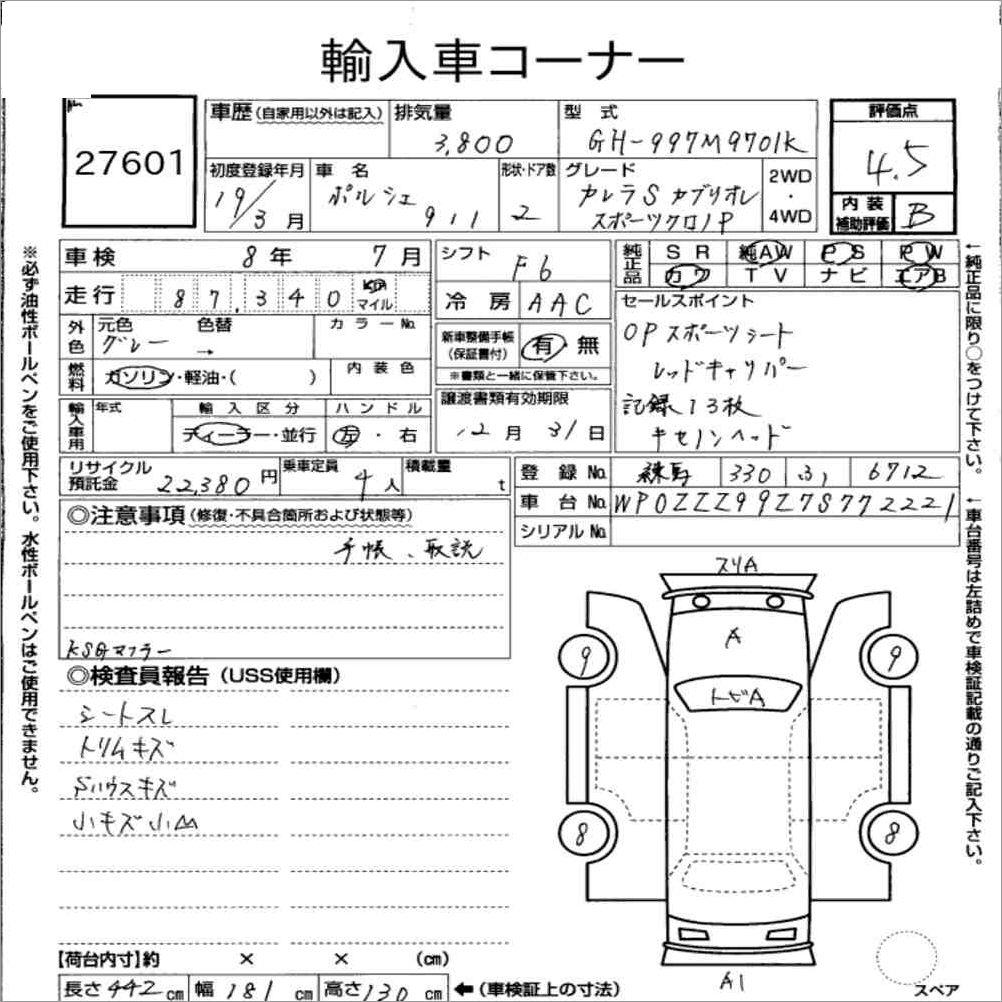 輸入車コーナー
27601
車歴 (自家用以外は記入) 排気量 型式 評価点
3,800 GH-997M9701K 4.5
初度登録年月 車名 形状・ドア数 グレード 2WD・4WD 内装補助評価 B
19/3月 ポルシェ 911 2 カレラS カブリオレ
スポーツクロノP
車検 8年 7月 シフト F6 純正品 SR 純AW PS PW
カワ TV ナビ エアB
走行 87,340 Km マイル 冷房 AAC セールスポイント
外色 元色 色替 カラーNo. 新車整備手帳(保証書付) 有 無
グレー → ※書類と一緒に保管下さい。
OPスポーツシート
レッドキャリパー
記録13枚
キセノンヘッド
燃料 ガソリン・軽油・( ) 内装色
譲渡書類有効期限
12月31日
輸入車用 年式 輸入区分 ハンドル
ディーラー・並行 左・右
リサイクル預託金 22,380円 乗車定員 4人 積載量 t
登録No. 練馬 330 ふ 6712
車台No. WP0ZZZ99Z7S772221
シリアルNo.
◎注意事項 (修復・不具合箇所および状態等)
手帳、取説
KSGマフラー
◎検査員報告 (USS使用欄)
シートスレ
トリムキズ
Sハウスキズ
小キズ小凹
スリA
A
トビA
9 9
8 8
A1
スペア
【荷台内寸】約 × × (cm)
長さ442cm 幅181cm 高さ130cm ←(車検証上の寸法)
※必ず油性ボールペンをご使用下さい。水性ボールペンはご使用できません。
←純正品に限り○をつけて下さい。
←車台番号は左詰めで車検証記載の通りご記入下さい。